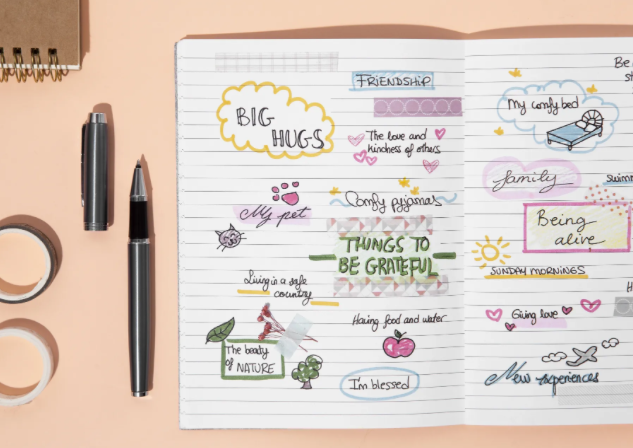 FRIENDSHIP
BIG
HUGS
The love and
kindness of others
My pet
Comfy pyjamas
THINGS TO
BE GRATEFUL
Living in a safe
country
Having food and water
The beauty
of NATURE
I'm blessed
Be
My comfy bed
family
swimm
Being
alive
SUNDAY MORNINGS
Giving love
New experiences